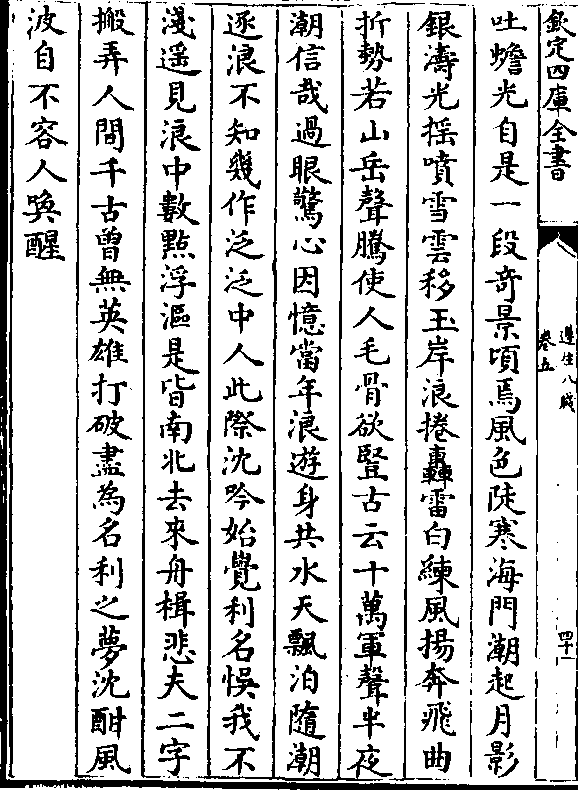 欽定四庫全書
遵生八牋
卷五
四十一
吐蟾光自是一段奇景頃焉風色陡寒海門潮起月影
銀濤光揺噴雪雲移玉岸浪捲轟雷白練風揚奔飛曲
折勢若山岳聲騰使人毛骨欲豎古云十萬軍聲半夜
潮信哉過眼驚心因憶當年浪遊身共水天飄泊隨潮
逐浪不知幾作泛泛中人此際沈吟始覺利名悞我不
淺遥見浪中數㸃浮漚是皆南北去來舟楫悲夫二字
搬弄人間千古曾無英雄打破盡為名利之夢沈酣風
波自不容人喚醒